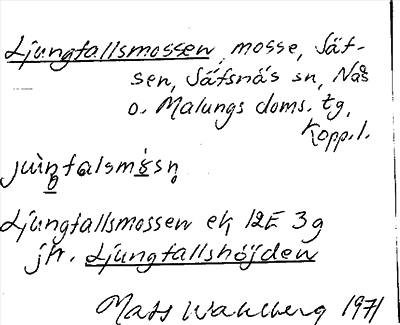 Ljungfallsmossen, mosse, Säf-
sen, Säfsnäs sn, Nås
o. Malungs doms. tg,
Kopp. l.
juŋfalsmåsn
Ljungfallsmossen ek 12E 3g
jfr. Ljungfallshöjden
Mats Wahlberg 1971